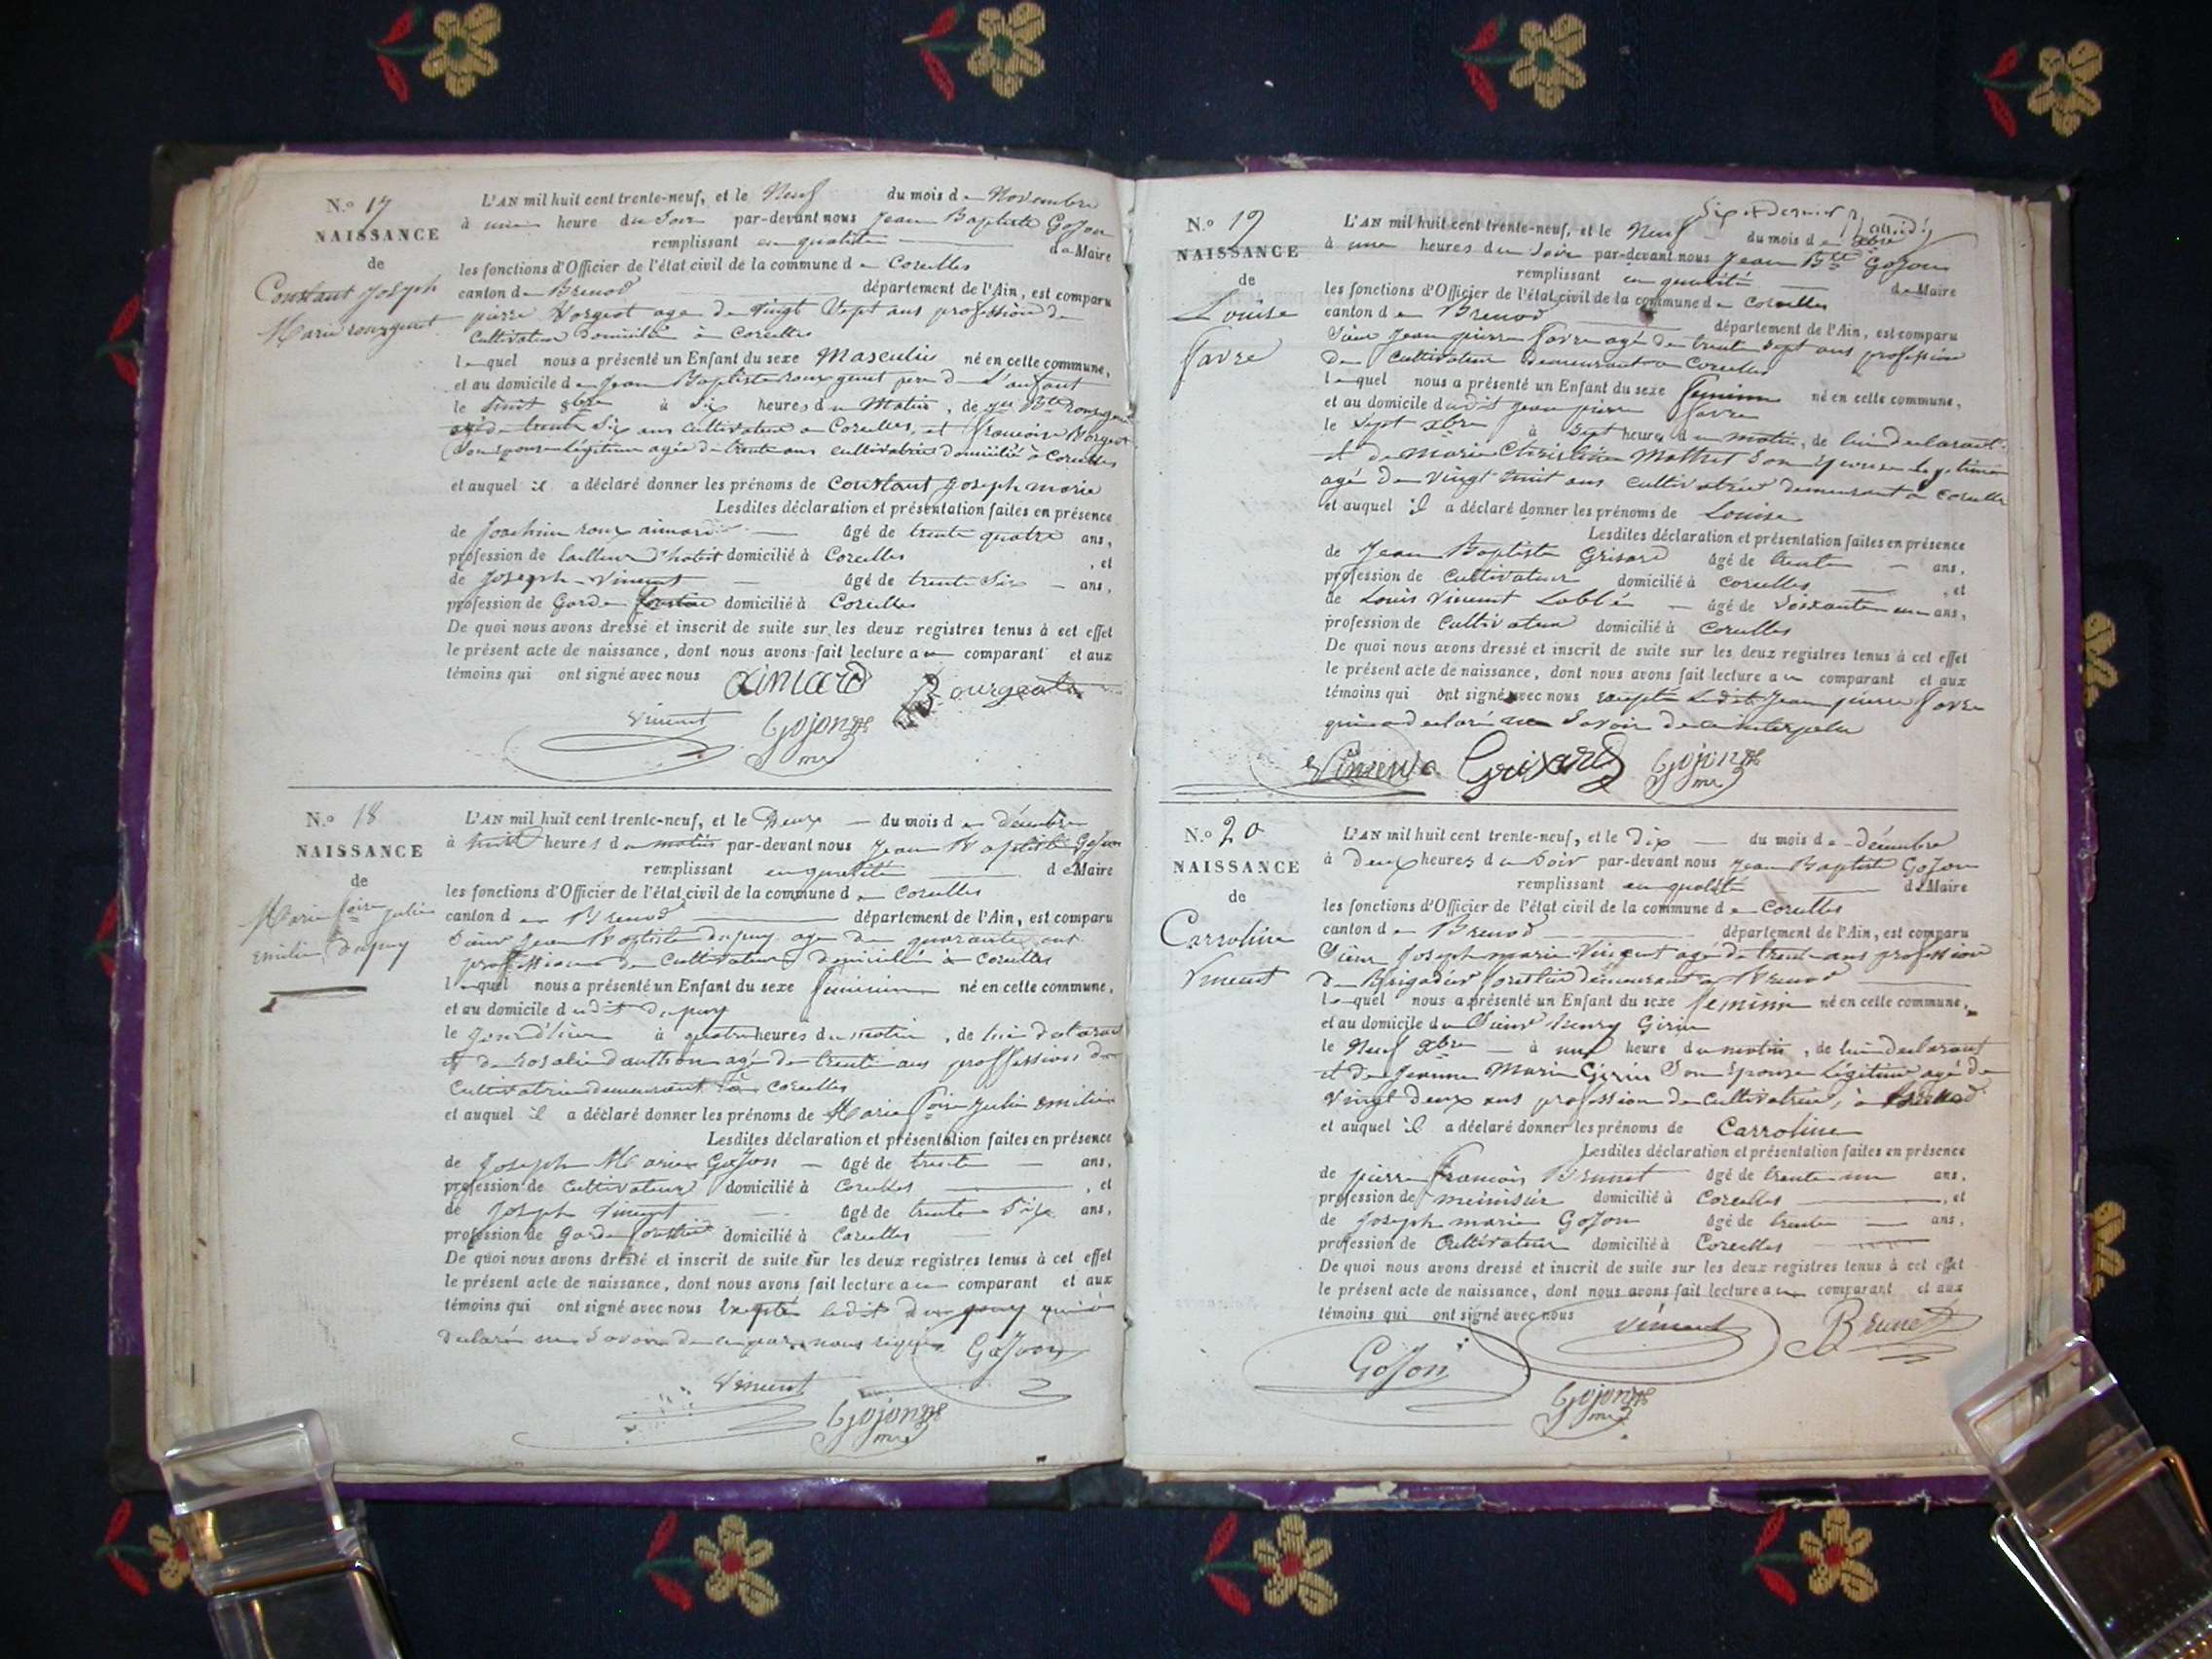 N.° 17
NAISSANCE
de
Constant Joseph
Marie rouxgenet
L'AN mil huit cent trente-neuf, et le Neuf du mois de Novembre
à une heure du Soir par-devant nous Jean Baptiste Gojon
remplissant en qualité de Maire
les fonctions d'Officier de l'état civil de la commune de Corcelles
canton de Brenod département de l'Ain, est comparu
pierre Borgeot age de vingt Sept ans profession de
Cultivateur Domicilié à Corcelles
lequel nous a présenté un Enfant du sexe Masculin né en cette commune,
et au domicile de Jean Baptiste rouxgenet pere de L'enfant
le huit 9bre à Six heures du Matin, de Jn Bte rouxgenet
agé de trente Six ans Cultivateur a Corcelles, et francoise Borgeot
Son épouse légitime agée de trente ans cultivatrice domicilié à Corcelles
et auquel il a déclaré donner les prénoms de Constant Joseph marie
Lesdites déclaration et présentation faites en présence
de Joachim roux aimard âgé de trente quatre ans,
profession de tailleur d'habit domicilié à Corcelles , et
de Joseph Vincent âgé de trente Six ans,
profession de Garde forestier domicilié à Corcelles
De quoi nous avons dressé et inscrit de suite sur les deux registres tenus à cet effet
le présent acte de naissance, dont nous avons fait lecture au comparant et aux
témoins qui ont signé avec nous aimard Bourgeat
Vincent Gojon
mre
N.° 18
NAISSANCE
de
Marie Julie
Emilie Dupuy
L'AN mil huit cent trente-neuf, et le Deux du mois de décembre
à huit heures du matin par-devant nous Jean Baptiste Gojon
remplissant en qualité de Maire
les fonctions d'Officier de l'état civil de la commune de Corcelles
canton de Brenod département de l'Ain, est comparu
Sieur Jean Baptiste dupuy age de quarante ans
proffession de Cultivateur domicilié à Corcelles
lequel nous a présenté un Enfant du sexe feminin né en cette commune,
et au domicile dudit Dupuy
le Jour d'hier à quatre heures du matin, de lui déclarant
et de rosalie dauthon agé de trente ans proffession de
Cultivatrice demeurant à Corcelles
et auquel il a déclaré donner les prénoms de Marie Julie Emilie
Lesdites déclaration et présentation faites en présence
de Joseph Marie Gojon âgé de trente ans,
profession de Cultivateur domicilié à Corcelles , et
de Joseph Vincent âgé de trente Six ans,
profession de Garde forestier domicilié à Corcelles
De quoi nous avons dressé et inscrit de suite sur les deux registres tenus à cet effet
le présent acte de naissance, dont nous avons fait lecture au comparant et aux
témoins qui ont signé avec nous Excepté ledit dupuy qui a
déclaré ne Savoir de ce par nous requis Gojon
Vincent Gojon
mre
Six et Dernier
N.° 19
NAISSANCE
de
Louise
favre
L'AN mil huit cent trente-neuf, et le Neuf du mois de xbre
à une heures du Soir par-devant nous Jean Bte Gojon
remplissant en qualité de Maire
les fonctions d'Officier de l'état civil de la commune de Corcelles
canton de Brenod département de l'Ain, est comparu
Sieur Jean pierre favre agé de trente Sept ans profession
De Cultivateur demeurant a Corcelles
lequel nous a présenté un Enfant du sexe feminin né en cette commune,
et au domicile dudit Jean pierre favre
le Sept xbre à Sept heures du matin, de lui declarant
et de Marie Christine Mathet Son Epouse Legitime
agé De Vingt huit ans Cultivatrice demeurant a Corcelles
et auquel il a déclaré donner les prénoms de Louise
Lesdites déclaration et présentation faites en présence
de Jean Baptiste Grisard âgé de trente ans,
profession de Cultivateur domicilié à Corcelles , et
de Louis Vincent Lablé âgé de Soixante un ans,
profession de Cultivateur domicilié à Corcelles
De quoi nous avons dressé et inscrit de suite sur les deux registres tenus à cet effet
le présent acte de naissance, dont nous avons fait lecture au comparant et aux
témoins qui ont signé avec nous excepté Ledit Jean pierre favre
qui a declaré ne Savoir de ce interpelu
Vincent Grixard Gojon
mre
N.° 20
NAISSANCE
de
Carroline
Vincent
L'AN mil huit cent trente-neuf, et le Dix du mois de décembre
à Deux heures du Soir par-devant nous Jean Baptiste Gojon
remplissant en qualité de Maire
les fonctions d'Officier de l'état civil de la commune de Corcelles
canton de Brenod département de l'Ain, est comparu
Sieur Joseph marie Vincent agé de trente ans profession
De Brigadier forestier demeurant a Brenod
lequel nous a présenté un Enfant du sexe feminin né en cette commune,
et au domicile du Sieur henry Girin
le Neuf xbre à une heure du matin, de lui declarant
et de Jeanne Marie Girin Son Epouse Légitime agé de
Vingt deux ans profession de Cultivatrice, à Brenod
et auquel il a déclaré donner les prénoms de Carroline
Lesdites déclaration et présentation faites en présence
de pierre francois Brunet âgé de trente un ans,
profession de menuisier domicilié à Corcelles , et
de Joseph marie Gojon âgé de trente ans,
profession de Cultivateur domicilié à Corcelles
De quoi nous avons dressé et inscrit de suite sur les deux registres tenus à cet effet
le présent acte de naissance, dont nous avons fait lecture au comparant et aux
témoins qui ont signé avec nous Vincent Brunet
Gojon
Gojon
mre